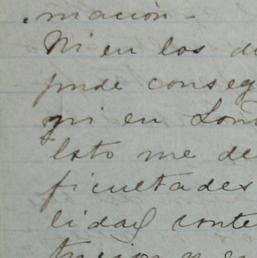 mación -
Ni en los di
pude conseg
ni en Lon
Esto me de
ficultades
lidad conte